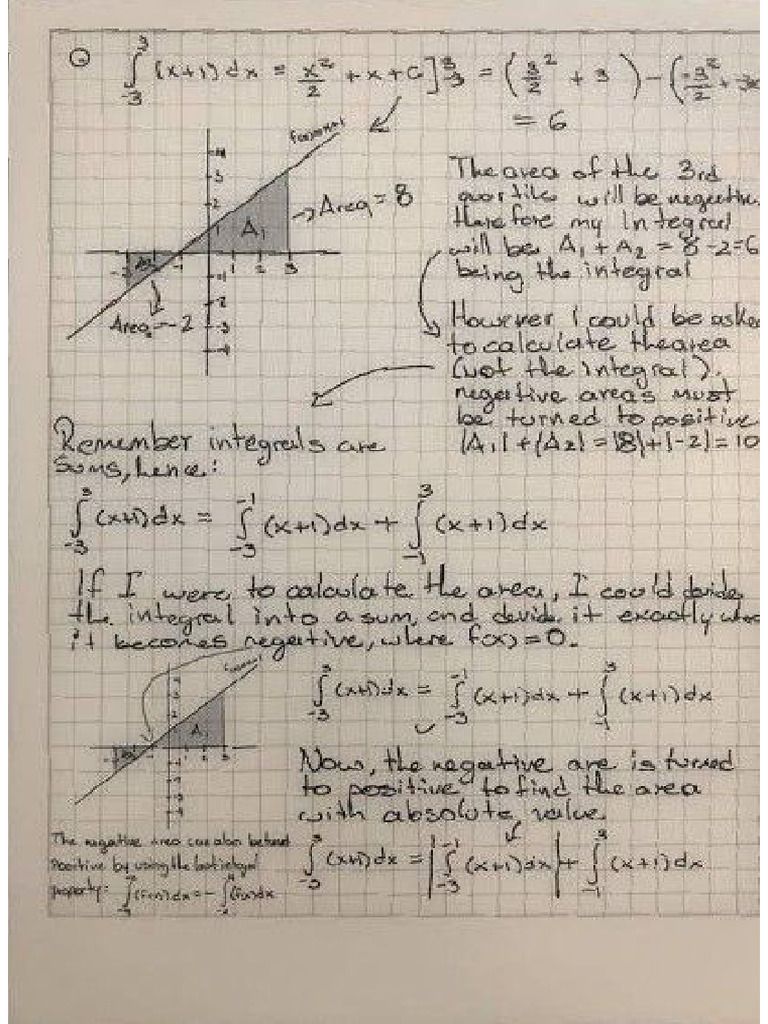 ∫₋₃³ (x+1) dx = x²/2 + x + C ]³₋₃ = (3²/2 + 3) − (−3²/2 + 3
= 6
f(x)=x+1
4
3
2
→ Area = 8
A₁
A₂
-1
1 2 3
-1
-2
-3
-4
Area = -2
The area of the 3rd
will be negative
therefore my integral
will be A₁ + A₂ = 8 - 2 = 6
being the integral
However I could be asked
to calculate the area
(not the integral).
negative areas must
be turned to positive
|A₁| + |A₂| = |8| + |-2| = 10
Remember integrals are
sums, hence:
∫₋₃³ (x+1) dx = ∫₋₃⁻¹ (x+1) dx + ∫₋₁³ (x+1) dx
If I were to calculate the area, I could devide
the integral into a sum, and devide it exactly
it becomes negative, where f(x) = 0.
A₁
∫₋₃³ (x+1) dx = ∫₋₃⁻¹ (x+1) dx + ∫₋₁³ (x+1) dx
Now, the negative are is turned
to positive to find the area
with absolute value
The negative area can also be turned
positive by using the last integral
property:
∫₋₃³ (x+1) dx = |∫₋₃⁻¹ (x+1) dx| + ∫₋₁³ (x+1) dx